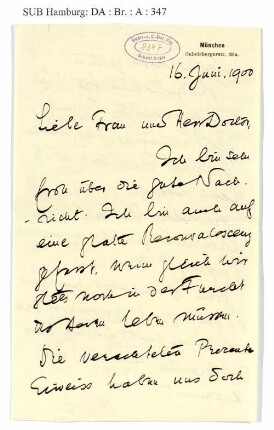 SUB Hamburg: DA : Br. : A : 347
München
Gabelsbergerstr. 20a.
16. Juni, 1900
Liebe Frau und Herr Doctor,
Ich bin sehr
froh über die gute Nach-
-richt. Ich bin auch auf
eine glatte Reconvalescenz
gefasst, wenn gleich wir
stets noch in der Furcht
des Herrn leben müssen.
Die verachteten Procente
Eiweiss haben uns doch